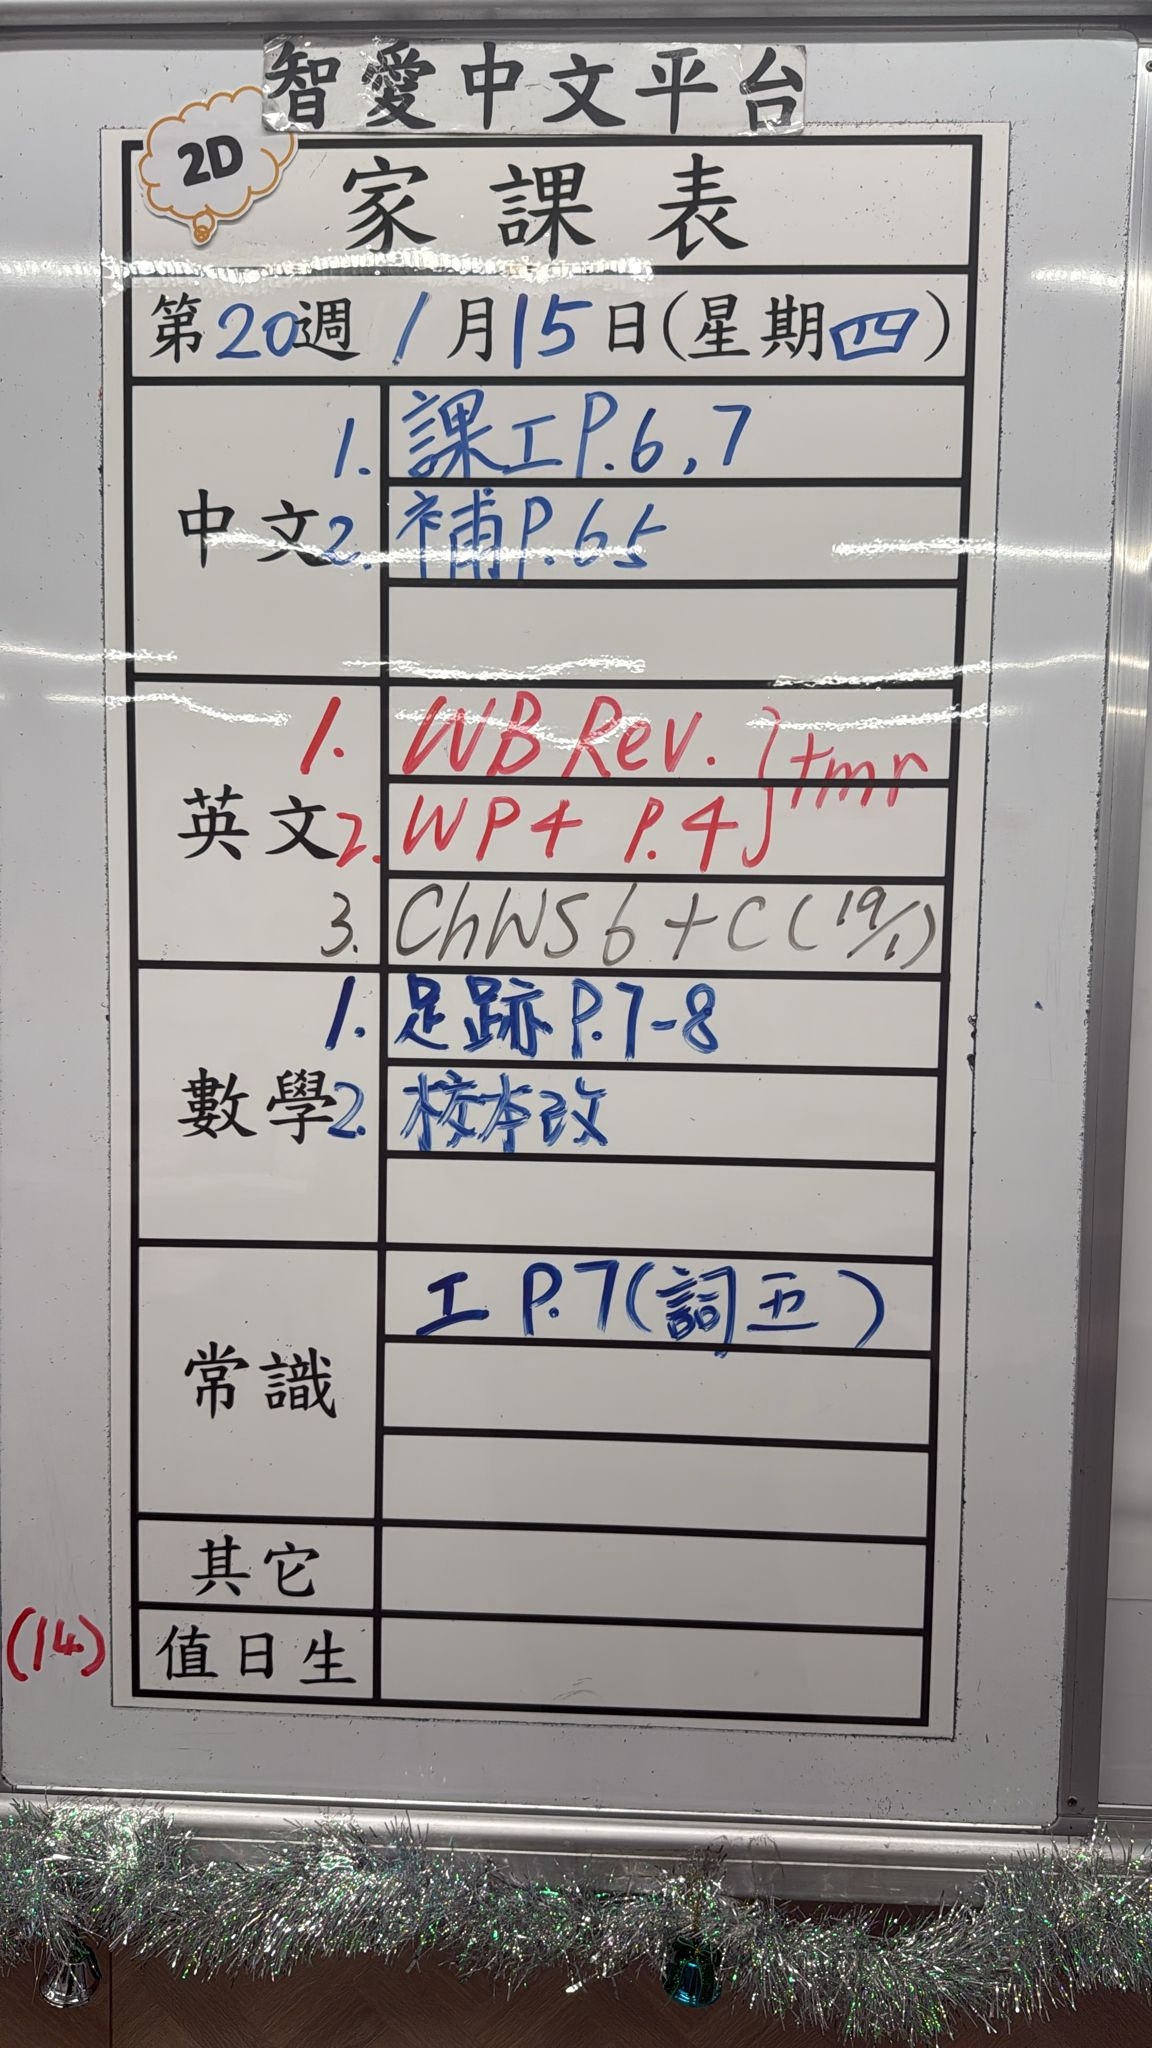 智愛中文平台
2D
家課表
第20週 1月15日(星期四)
中文
1. 課工P.6,7
2. 補P.65
英文
1. WB Rev. } tmr
2. WP4 P.4
3. ChWS 6 + C (19/1)
數學
1. 足跡P.7-8
2. 校本改
常識
工 P.7(詞五)
其它
(14)
值日生